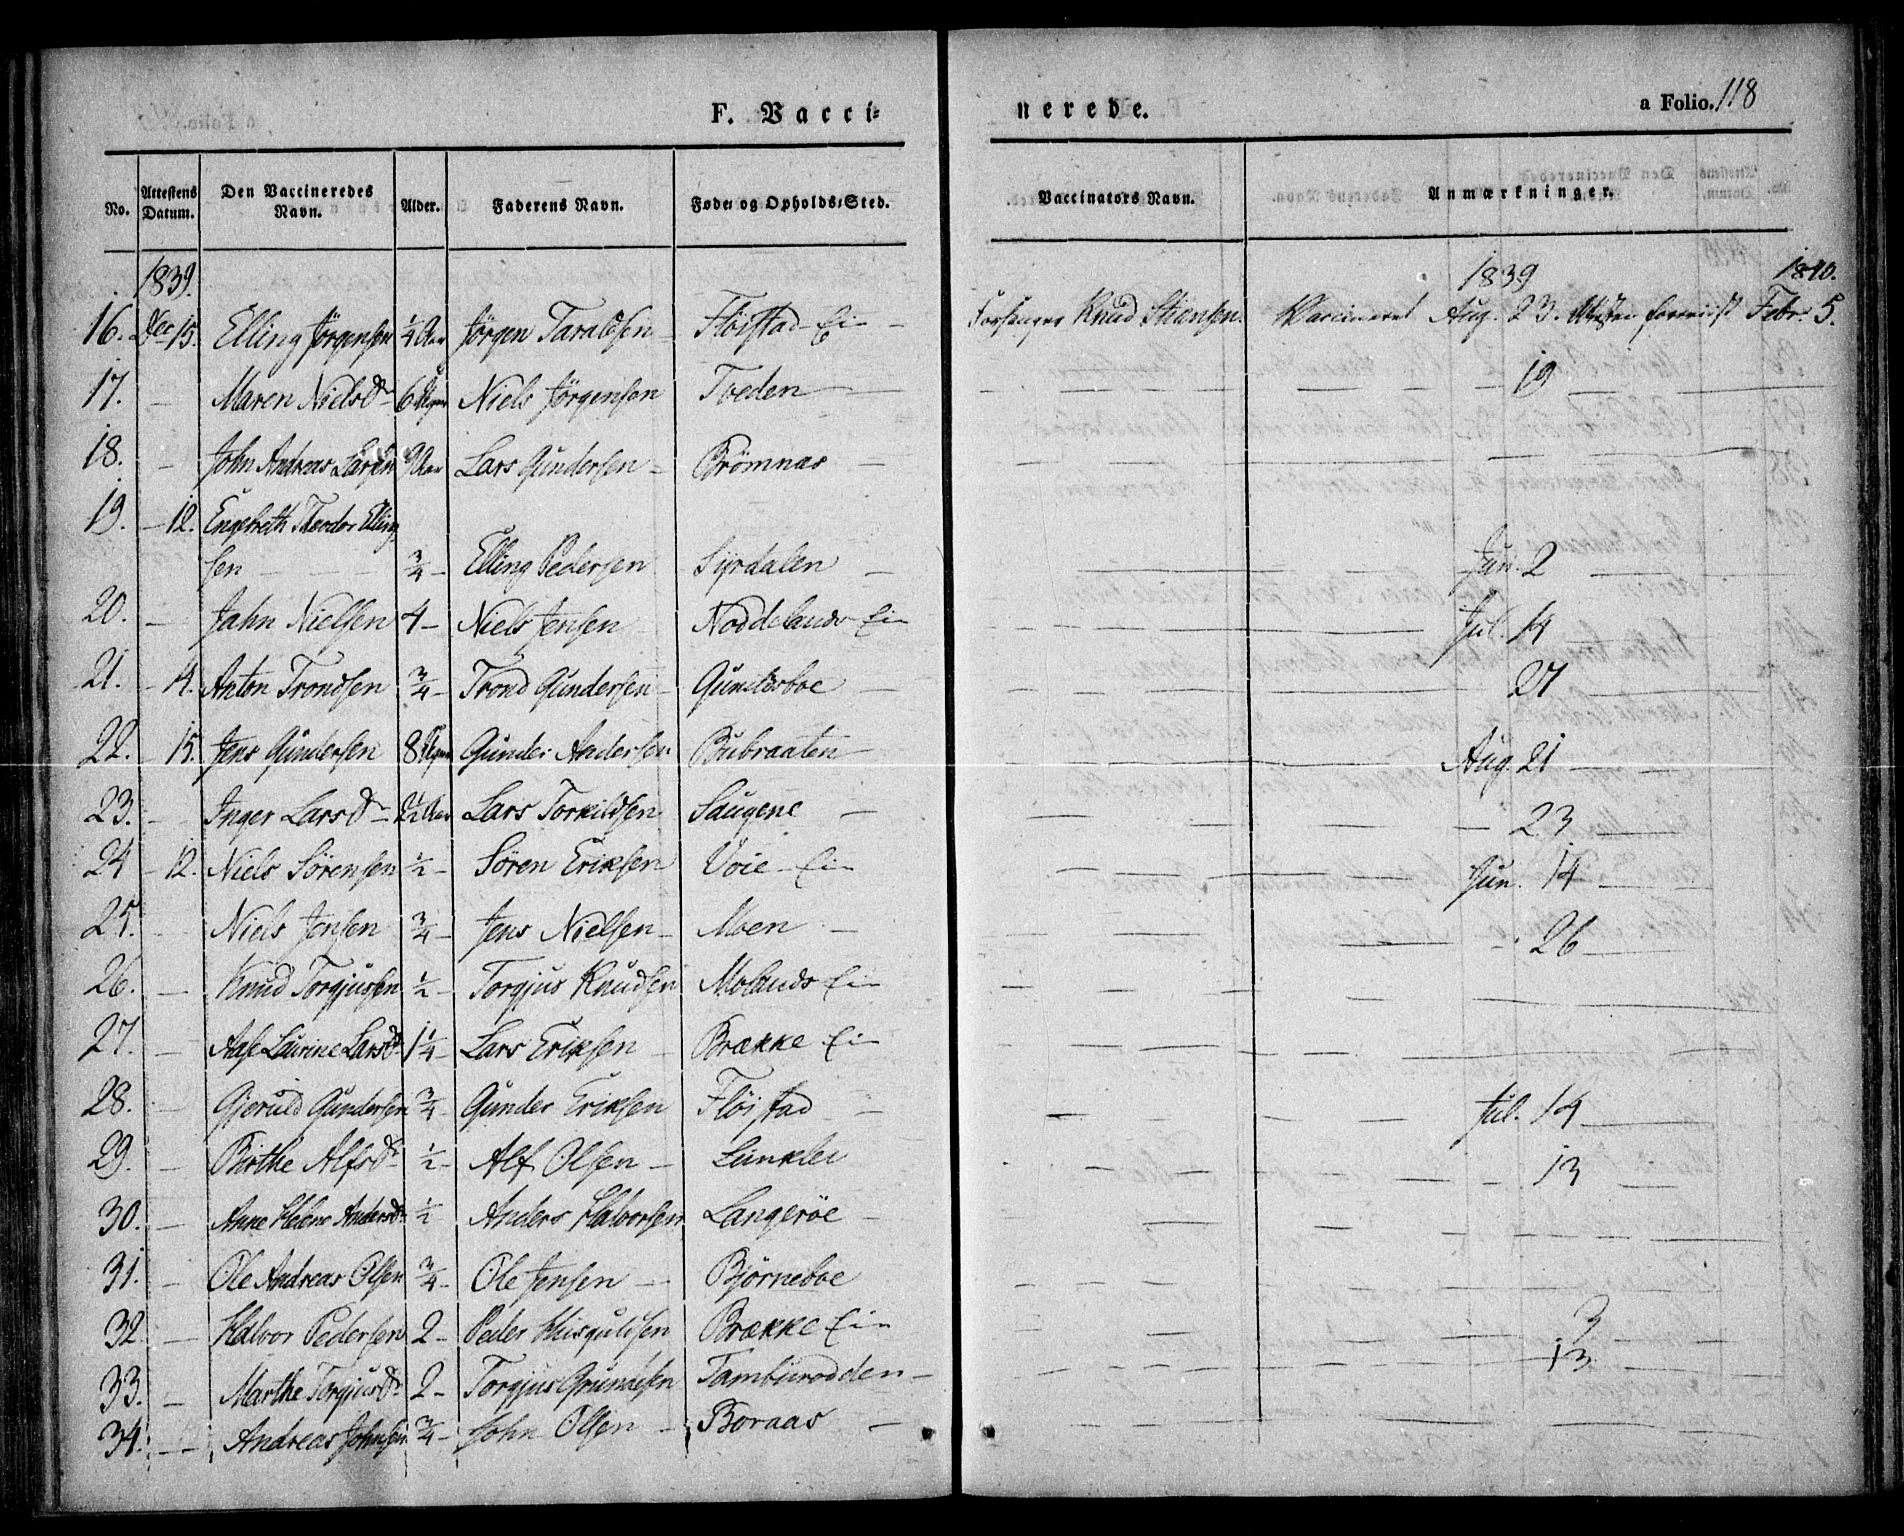 F. Vacci-
nerede.
a Folio. 118
No. Attestens Datum. Den Vaccineredes Navn. Alder. Faderens Navn. Føde- og Opholds-Sted. Vaccinators Navn. Anmærkninger.
1839. 1839 1840.
16. Dec 15. Elling Jörgensen ¼ Aar Jörgen Taraldsen - Flöistad Ei - Knud Stiansen. Vaccineret Aug. 23. Febr. 5.
17. - Maren Nielsdr 6 Niels Jörgensen Tveden - 19
18. - John Andreas Larsen 9 Aar Lars Gundersen - Brömnas -
19. - 12. Engebreth Theodor Elling
sen - ¾ - Elling Pedersen Syrdalen - Jun. 2
20. - Jahn Nielsen 4 - Niels Jensen Noddelands Ei - Jul. 14
21. - 14. Anton Trondsen ¾ - Trond Gundersen - Gundersboe - 27
22. - 15. Jens Gundersen 8 Gunder Andersen Bubraaten - Aug. 21
23. - Inger Larsdr 2½ Aar Lars Torkildsen Saugene - 23
24 - 12. Niels Sörensen ½ - Sören Eriksen Voie - Ei - Jun. 14
25. - Niels Jensen ¾ - Jens Nielsen - Moen - 26
26. - Knud Torgjusen ½ - Torgjus Knudsen Molands Ei -
27. - Aase Laurine Larsdr 1¼ - Lars Eriksen - Brække Ei -
28. - Gjeruld Gundersen ¾ - Gunder Eriksen Flöistad - Jul. 14
29. - Birthe Alfsdr ½ - Alf Olsen - Lunklei - 13
30. - Anne Helene Andersdr ½ Anders Halvorsen Langeröe -
31. - Ole Andreas Olsen ¾ - Ole Jensen - Björneboe
32 - Halvor Pedersen 2 - Peder Hisguldsen Brække Ei - 3
33. - Marthe Torgjusdr 2 - Torgjus Grundesen Tamburodden - 13
34. - - Andreas Johnsen ¾ - John Olsen - Boraas -